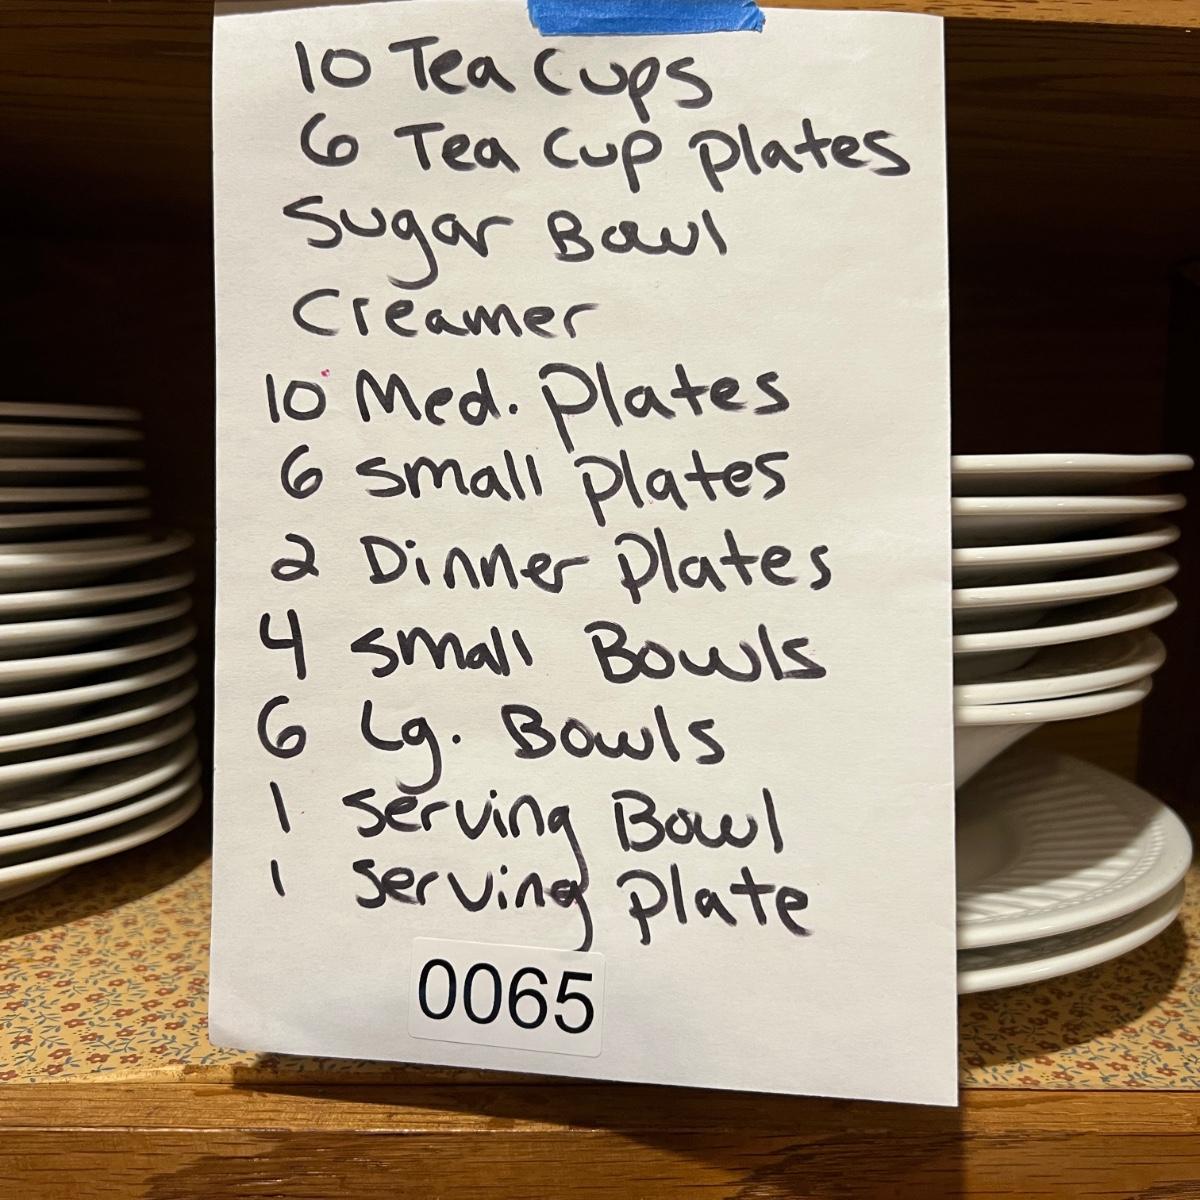 10 Tea Cups
6 Tea Cup Plates
Sugar Bowl
Creamer
10 Med. Plates
6 Small Plates
2 Dinner Plates
4 Small Bowls
6 Lg. Bowls
1 Serving Bowl
1 Serving Plate
0065